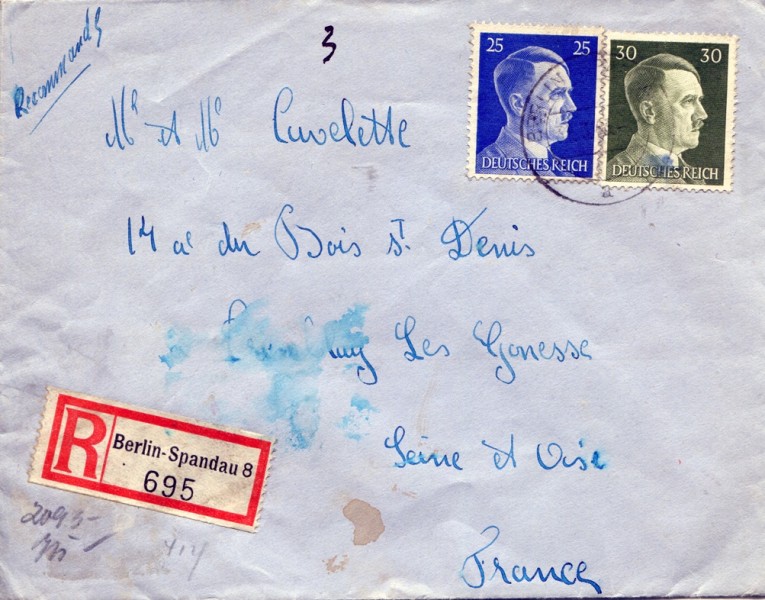 Recommandé
3
25 25
DEUTSCHES REICH
30 30
DEUTSCHES REICH
a
Mr et Me Cuvelette
14 av du Bois St Denis
Les Gonesse
Seine et Oise
France
R
Berlin-Spandau 8
695
2095
414